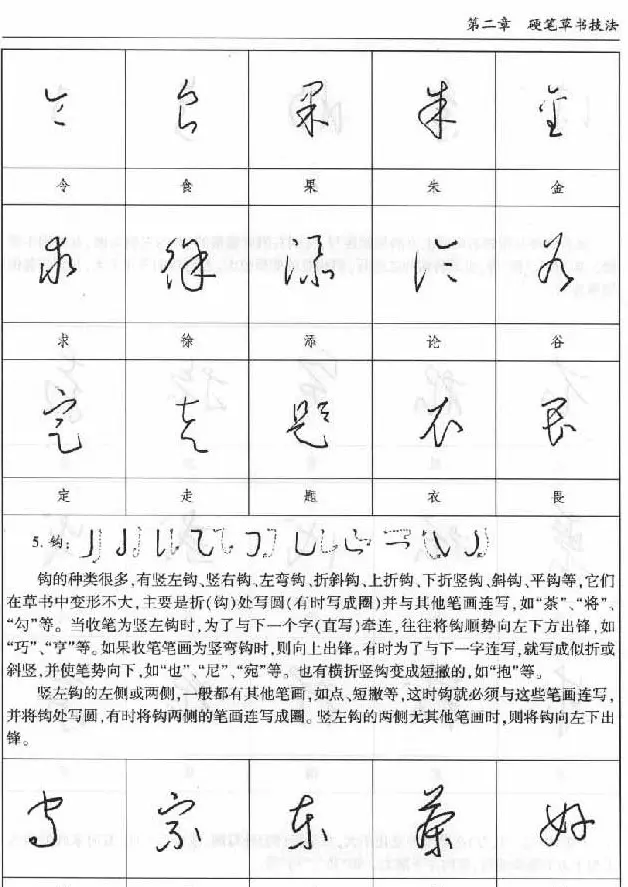 第二章 硬笔草书技法
令 食 果 朱 金
求 徐 添 论 谷
定 走 题 衣 畏
5. 钩:
钩的种类很多,有竖左钩、竖右钩、左弯钩、折斜钩、上折钩、下折竖钩、斜钩、平钩等,它们
在草书中变形不大,主要是折(钩)处写圆(有时写成圈)并与其他笔画连写,如“茶”、“将”、
“勾”等。当收笔为竖左钩时,为了与下一个字(直写)牵连,往往将钩顺势向左下方出锋,如
“巧”、“亨”等。如果收笔笔画为竖弯钩时,则向上出锋。有时为了与下一字连写,就写成似折或
斜竖,并使笔势向下,如“也”、“尼”、“宛”等。也有横折竖钩变成短撇的,如“抱”等。
竖左钩的左侧或两侧,一般都有其他笔画,如点、短撇等,这时钩就必须与这些笔画连写,
并将钩处写圆,有时将钩两侧的笔画连写成圈。竖左钩的两侧无其他笔画时,则将钩向左下出
锋。